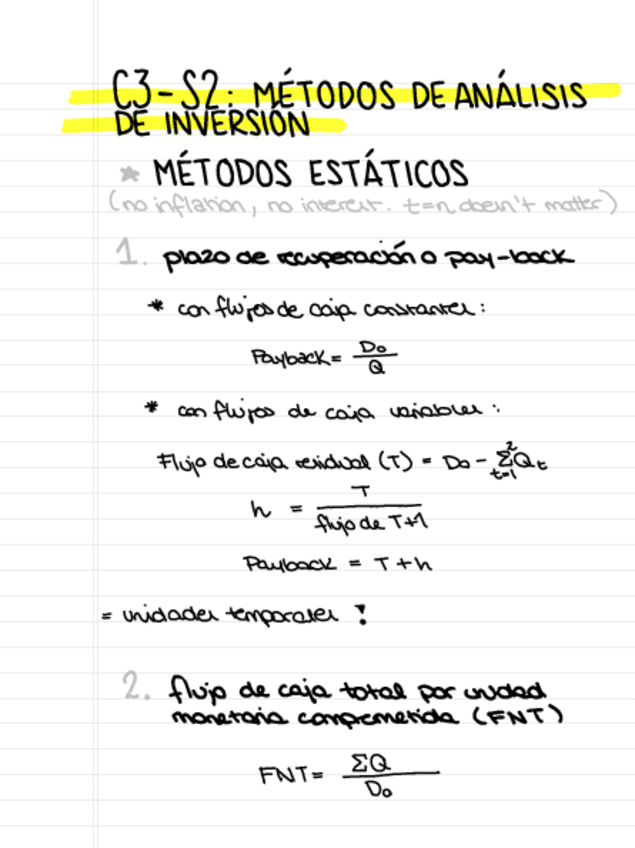 C3-S2: MÉTODOS DE ANÁLISIS
DE INVERSIÓN
* MÉTODOS ESTÁTICOS
(no inflation, no interest. t=n doesn't matter)
1. plazo de recuperación o pay-back
* con flujos de caja constantes:
Payback = Do / Q
* con flujos de caja variables:
Flujo de caja residual (T) = Do - 2 Σ t=1 Qt
h = T / flujo de T+1
Payback = T + h
= unidades temporales !
2. flujo de caja total por unidad
monetaria comprometida (FNT)
FNT = ΣQ / Do